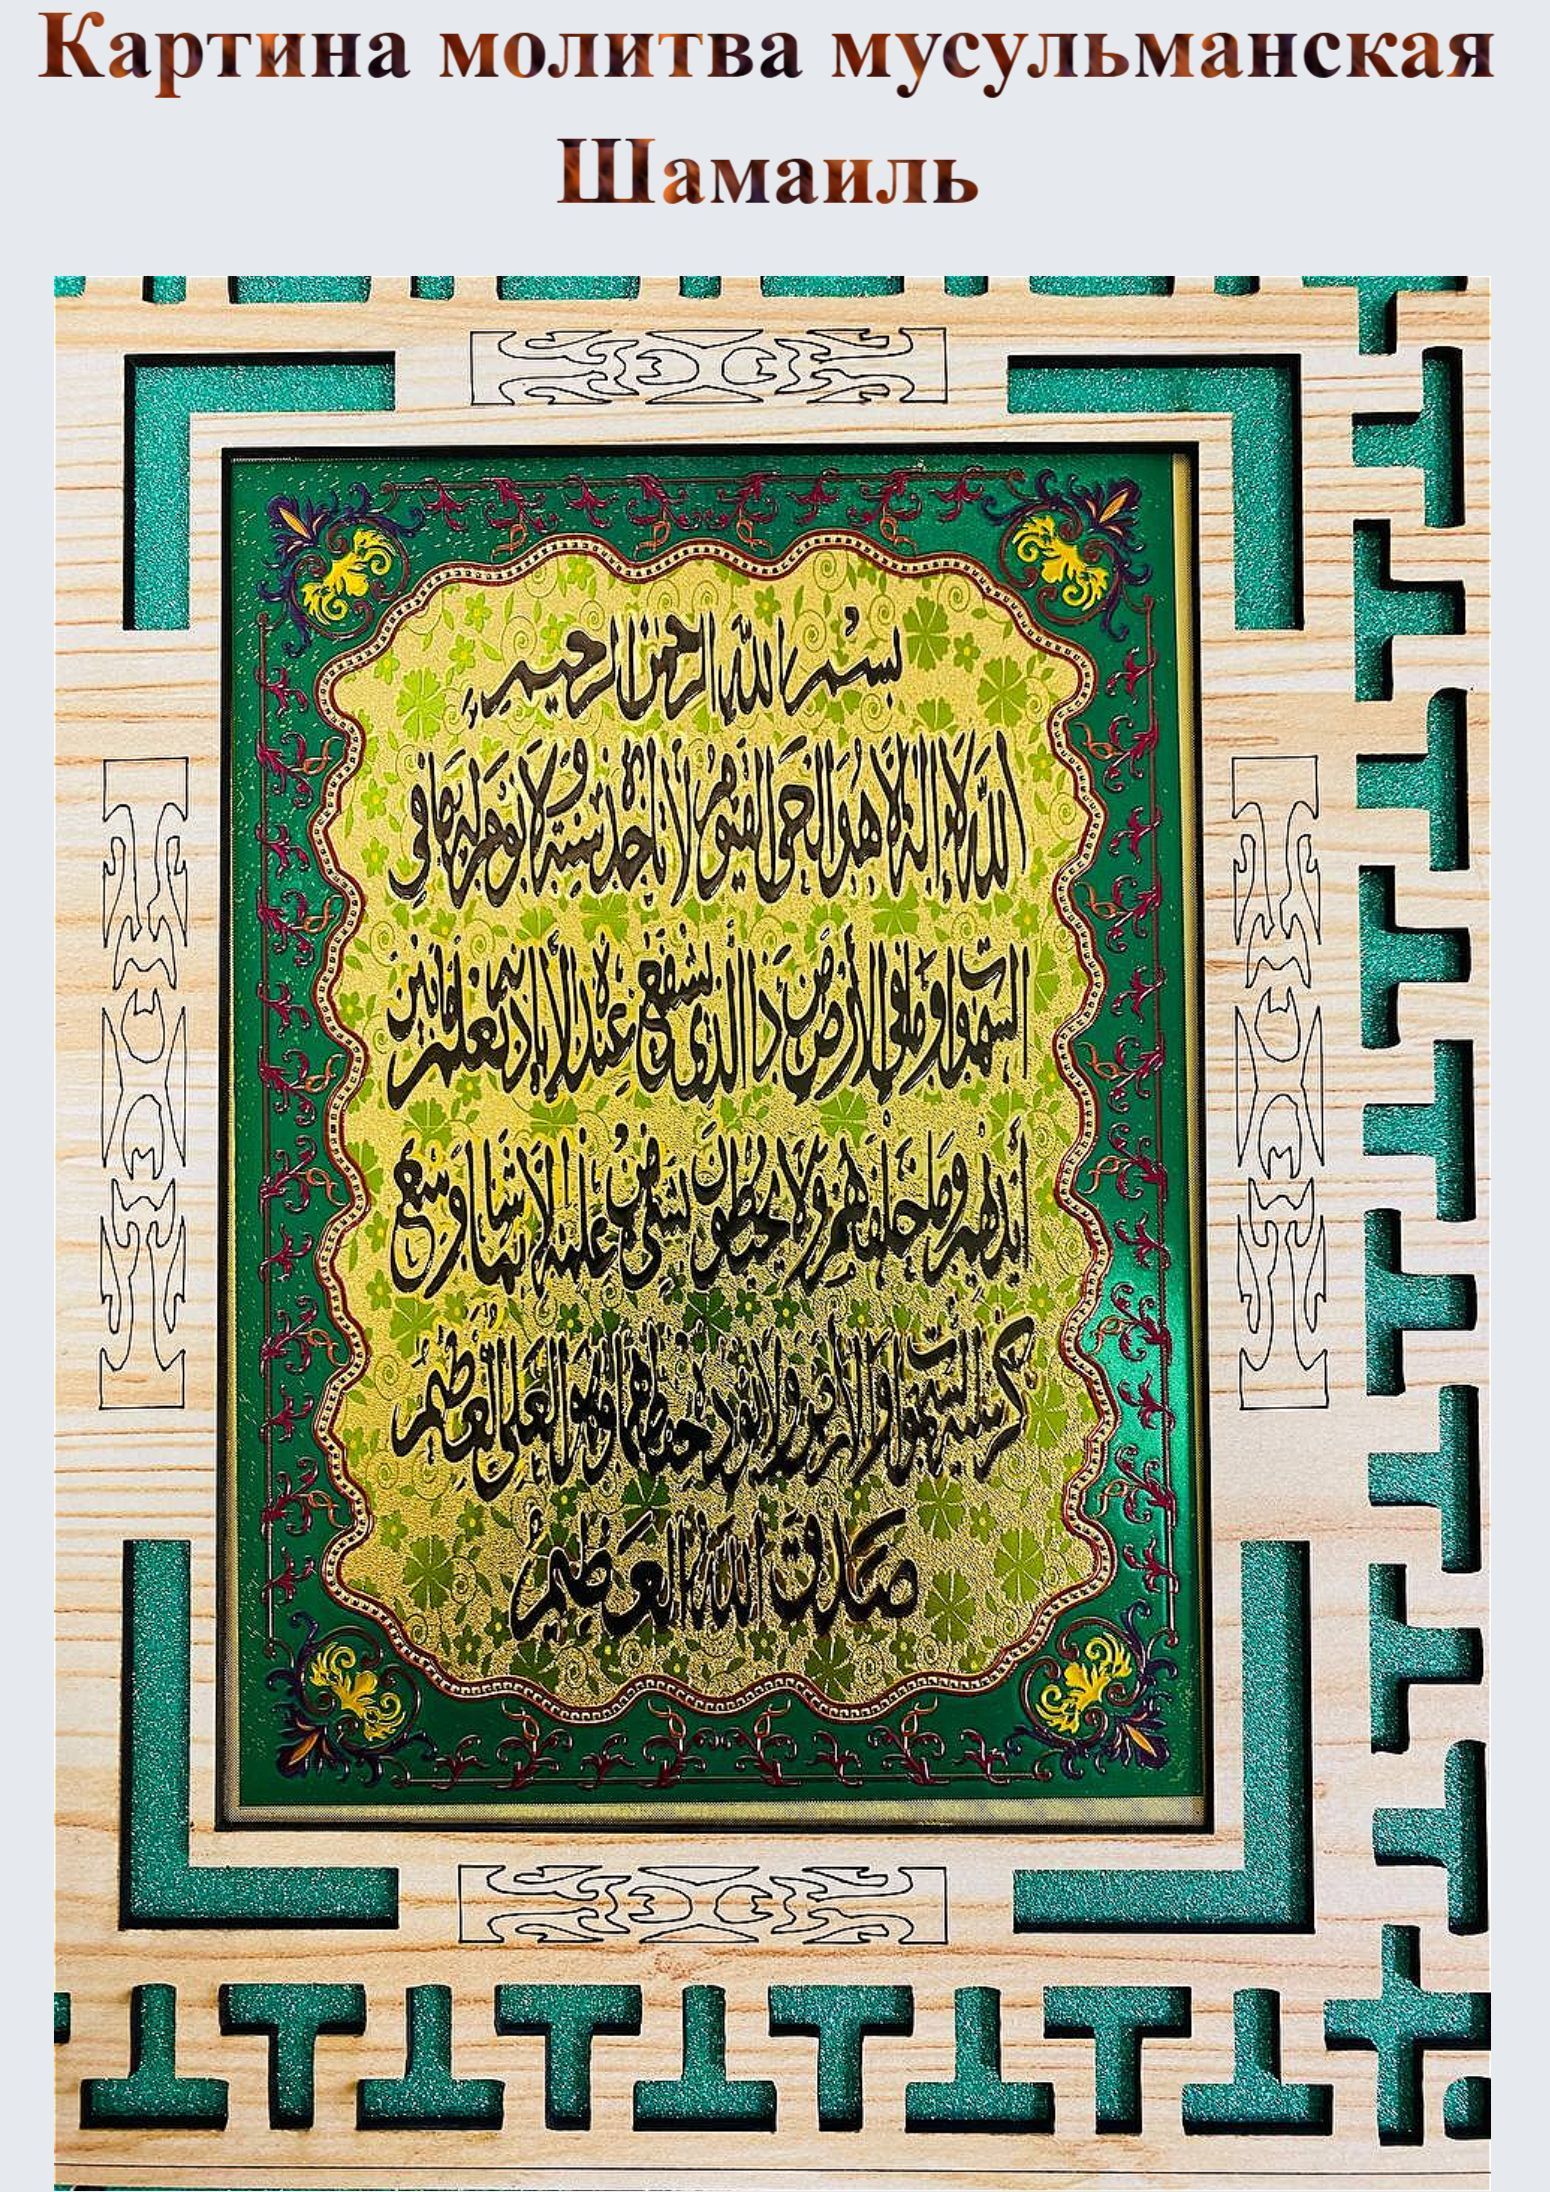 Картина молитва мусульманская
Шамаиль
بسم الله الرحمن الرحيم
الله لا إله إلا هو الحي القيوم لا تأخذه سنة ولا نوم له ما في
السموات وما في الأرض من ذا الذي يشفع عنده إلا بإذنه يعلم ما بين
أيديهم وما خلفهم ولا يحيطون بشيء من علمه إلا بما شاء وسع
كرسيه السموات والأرض ولا يؤده حفظهما وهو العلي العظيم
صدق الله العظيم